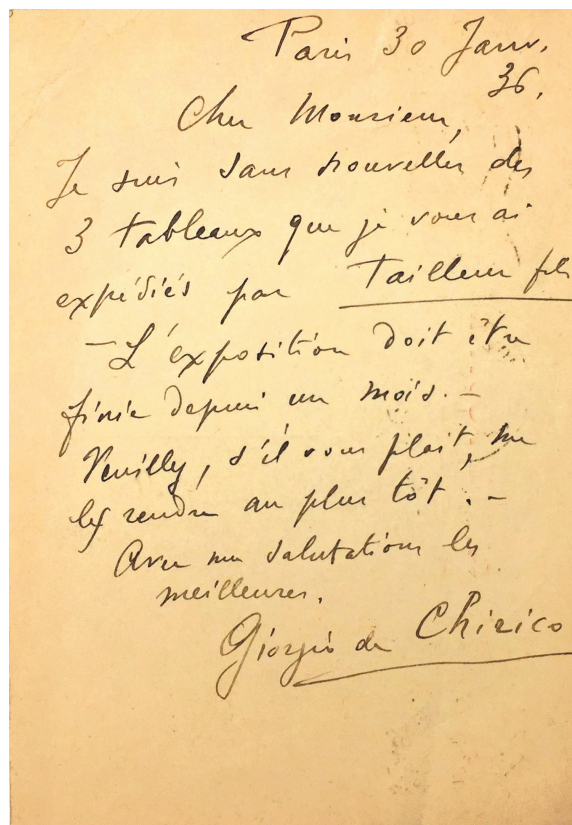 Paris 30 Janv.
36.
Cher Monsieur,
Je suis sans nouvelles des
3 tableaux que je vous ai
expédiés par Tailleur fils
– L'exposition doit être
finie depuis un mois. –
Veuilly, s'il vous plait, me
les rendre au plus tôt. –
Avec mes salutations les
meilleures.
Giorgio de Chirico